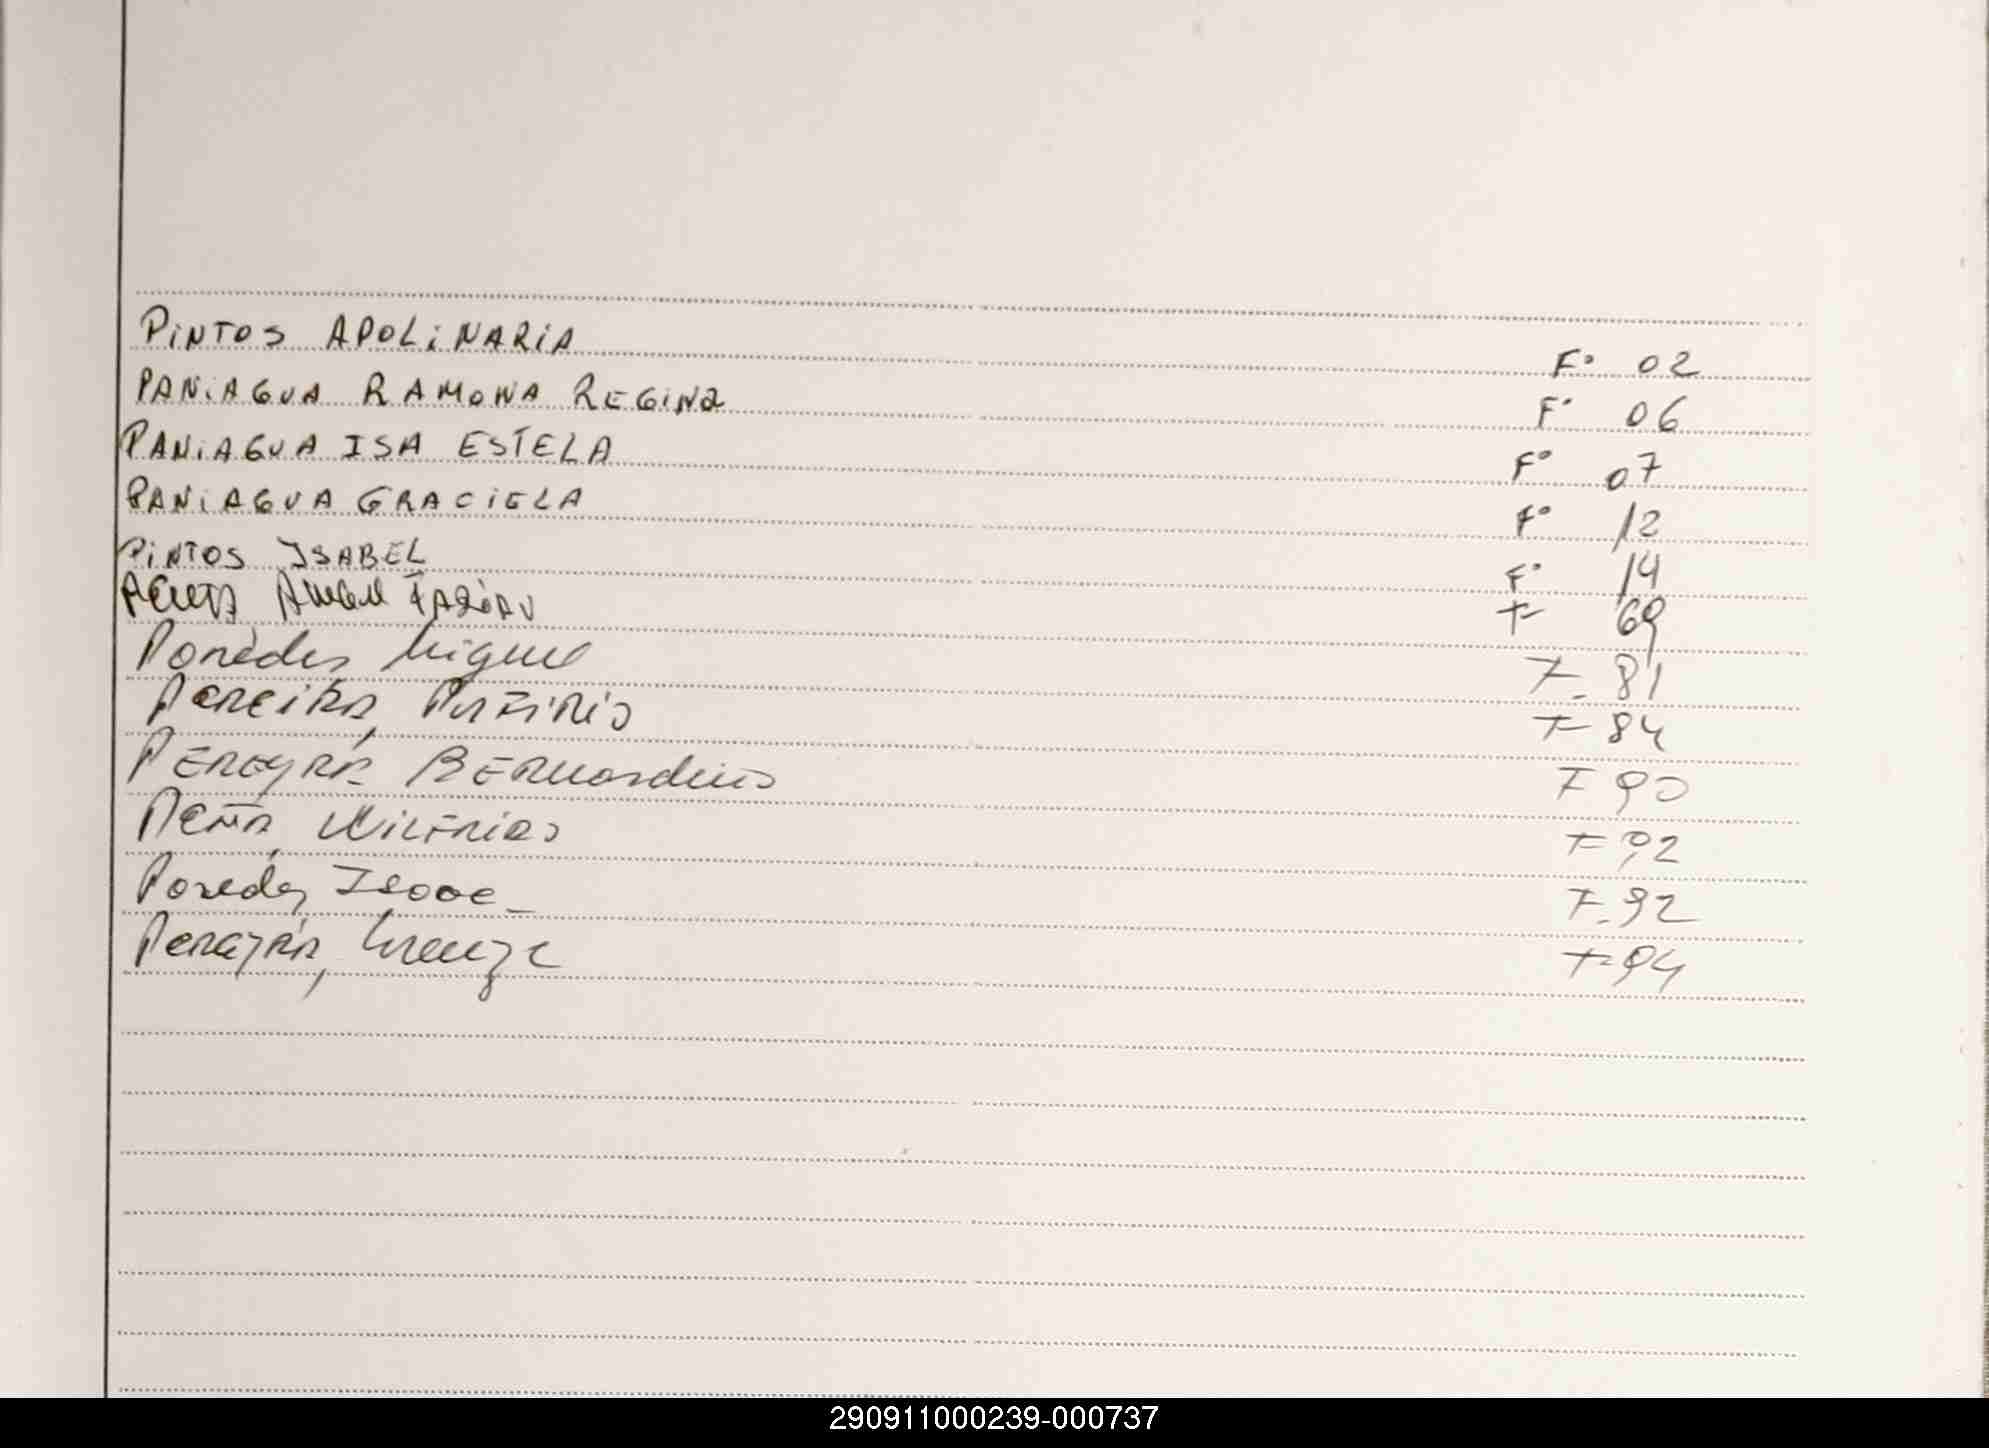 PINTOS APOLINARIA F° 02
PANIAGUA RAMONA REGINA F° 06
PANIAGUA ISA ESTELA F° 07
PANIAGUA GRACIELA F° 12
PINTOS ISABEL F° 14
F- 69
Paredes Miguel F- 81
Pereira, F- 84
PEREYRA BERNardino F 90
Peña, Wilfrido F- 92
Paredes, Isaac F- 92
Pereyra, F- 94
290911000239-000737